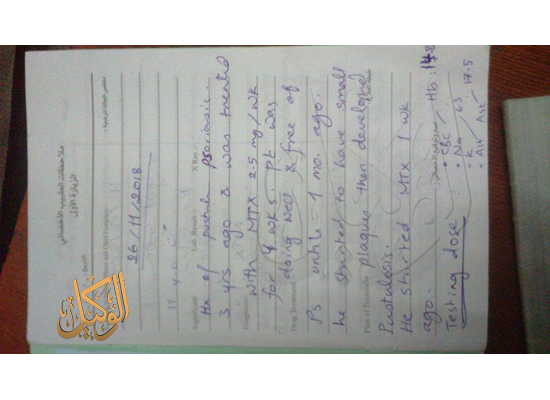 ملاحظات الطبيب الأخصائي
الزيارة الأولى
26/11/2018
11 y.o. ♂
Symptoms
Lab. Results
X Ray
Hx of pustular psoriasis.
3 yrs ago & was treated
Diagnosis
with MTX 2.5 mg/wk
for 4 wks. Pt was
doing well & free of
Drug Treatment
Ps until 1 mo. ago.
he started to have small
plaques then developed
Plan of Treatment
Pustulosis.
He started MTX 1 wk
ago.
Testing dose
• CBC Hb: 14.8
• Na 63
• K
• Alt Ast 17.5
الوكيل